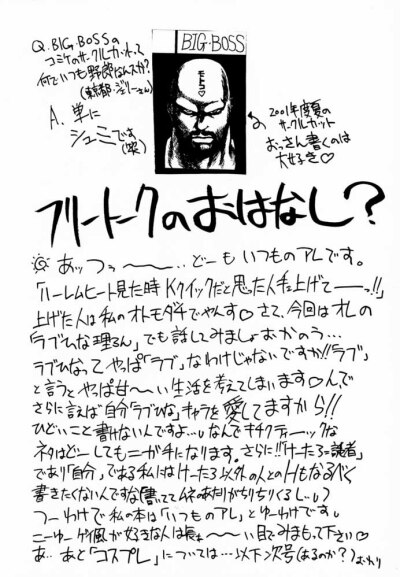 Q. BIG・BOSSの
コミケのサークルカットって
何でいつも野郎なんスか?
(東京都・ジェリーさん)
A. 単に
シュミです
(笑)
BIG・BOSS
2001年度夏の
サークルカット
おっさん書くのは
大好き♡
フリートークのおはなし?
あッつぅ〜〜‥ どーも いつものアレです。
「ハーレムヒート見た時 Kクイックだと思た人手ェ上げてーーっ!!」
上げた人は私のオトモダチでやんす♡ さて、今回はオレの
「ラブひな理るん」でも話してみましょおかのう…
ラブひなって やっぱ「ラブ」なわけじゃないですか!!「ラブ」
と言うと やっぱ甘〜〜い生活を考えてしまいます♡んで
さらに言えば自分「ラブひな」キャラを愛してますから!!
ひどいこと書けないんですよ…。なんでキチクティーックな
ネタはどーしてもニガ手になります。さらに!!「けーたろ=読者」
であり「自分」である私にはけーたろ以外の人とのHもなるべく
書きたくないんですな(書いてて ムネのあたりがちりちりくるし。)
つーわけで 私の本は「いつものアレ」とゆーわけです。
こーゆーゲイ風が好きな人は長ぁ〜〜い目でみまもって下さい♡
あ… あと「コスプレ」については…以下次号(あるのか?) おわり